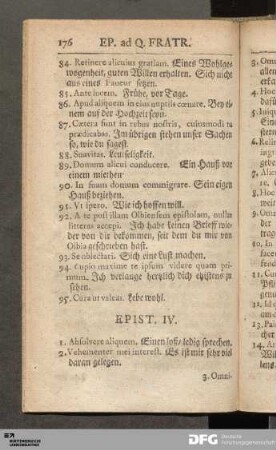 176 EP. ad Q. FRATR.
84. Retinere alicuius gratiam. Eines Wohlge-
wogenheit, guten Willen erhalten. Sich nicht
aus eines Faueur setzen.
85. Ante lucem. Frühe, vor Tage.
86. Apud aliquem in eius nuptiis cœnare. Bey ei-
nem auf der Hochzeit seyn.
87. Cætera sunt in rebus nostris, cuiusmodi tu
prædicabas. Im übrigen stehen unsre Sachen
so, wie du sagest.
88. Suavitas. Leutseligkeit.
89. Domum alicui conducere. Ein Hauß vor
einem miethen
90. In suam domum commigrare. Sein eigen
Hauß beziehen.
91. Ut spero. Wie ich hoffen will.
92. A te post illam Olbiensem epistolam, nullas
litteras accepi. Ich habe keinen Brieff wie-
der von dir bekommen, seit dem du mir von
Olbia geschrieben hast.
93. Se oblectari. Sich eine Lust machen.
94. Cupio maxime te ipsum videre quam pri-
mum. Ich verlange hertzlich dich ehistens zu
sehen.
95. Cura ut valeas. Lebe wohl.
EPIST. IV.
1. Absolvere aliquem. Einen loß-ledig sprechen.
2. Vehementer mei interest. Es ist mir sehr viel
daran gelegen.
3. Omni-
UNIVERSITÄTS-
UND LANDESBIBLIOTHEK
DFG